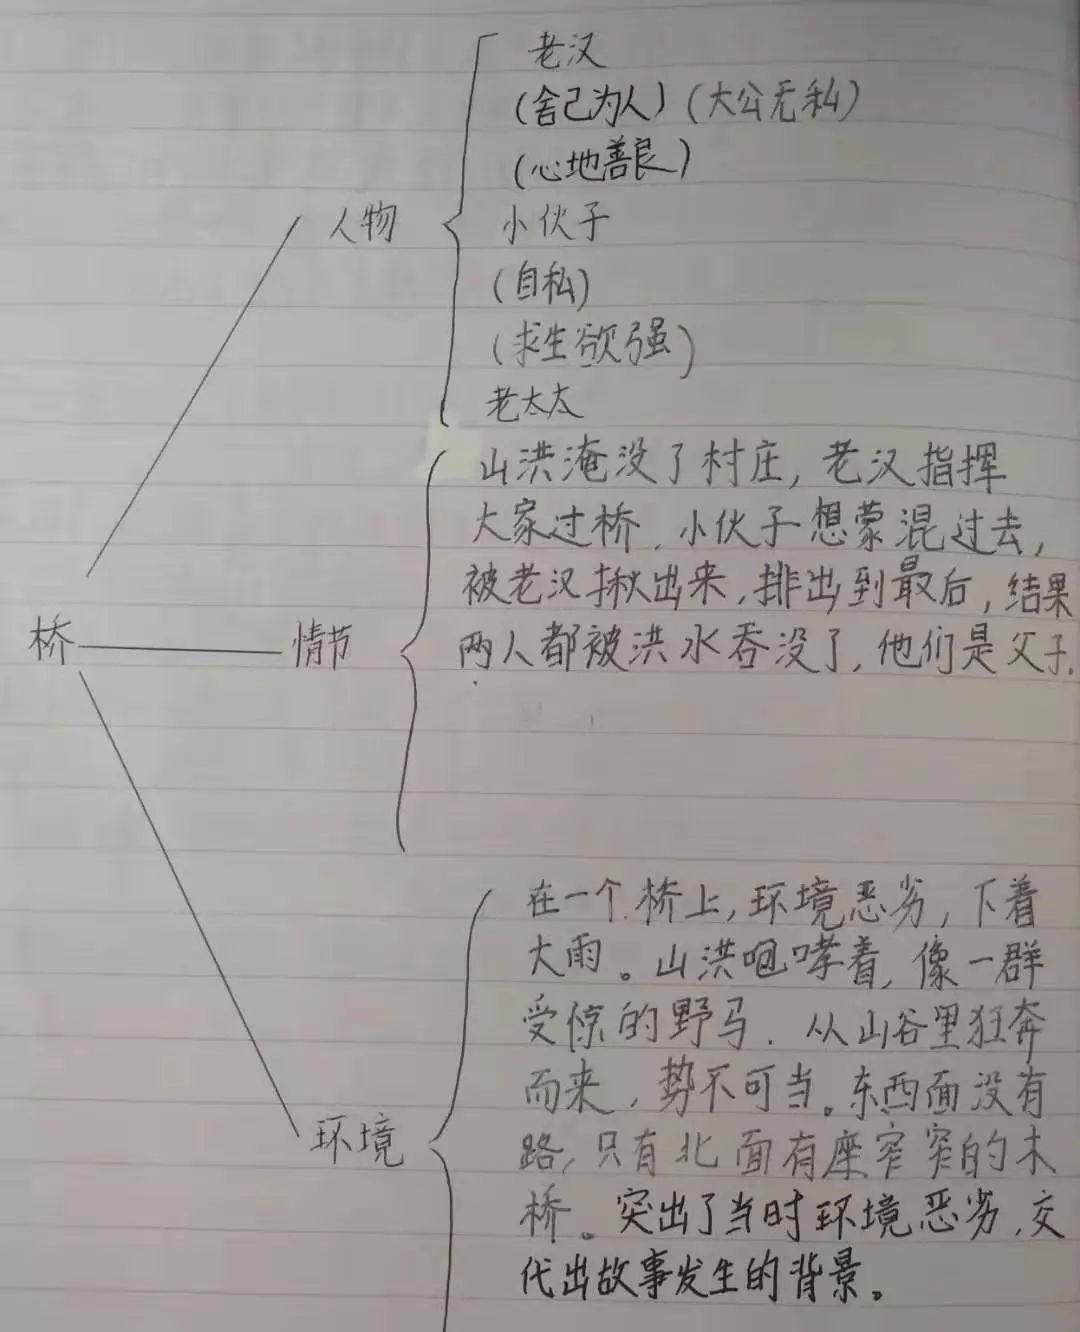 老汉
(舍己为人)(大公无私)
(心地善良)
人物
小伙子
(自私)
(求生欲强)
老太太
山洪淹没了村庄,老汉指挥
大家过桥.小伙子想蒙混过去,
被老汉揪出来,排出到最后,结果
桥
情节
两人都被洪水吞没了,他们是父子.
在一个桥上,环境恶劣,下着
大雨。山洪咆哮着,像一群
受惊的野马.从山谷里狂奔
而来,势不可当。东西面没有
环境
路,只有北面有座窄窄的木
桥。突出了当时环境恶劣,交
代出故事发生的背景。